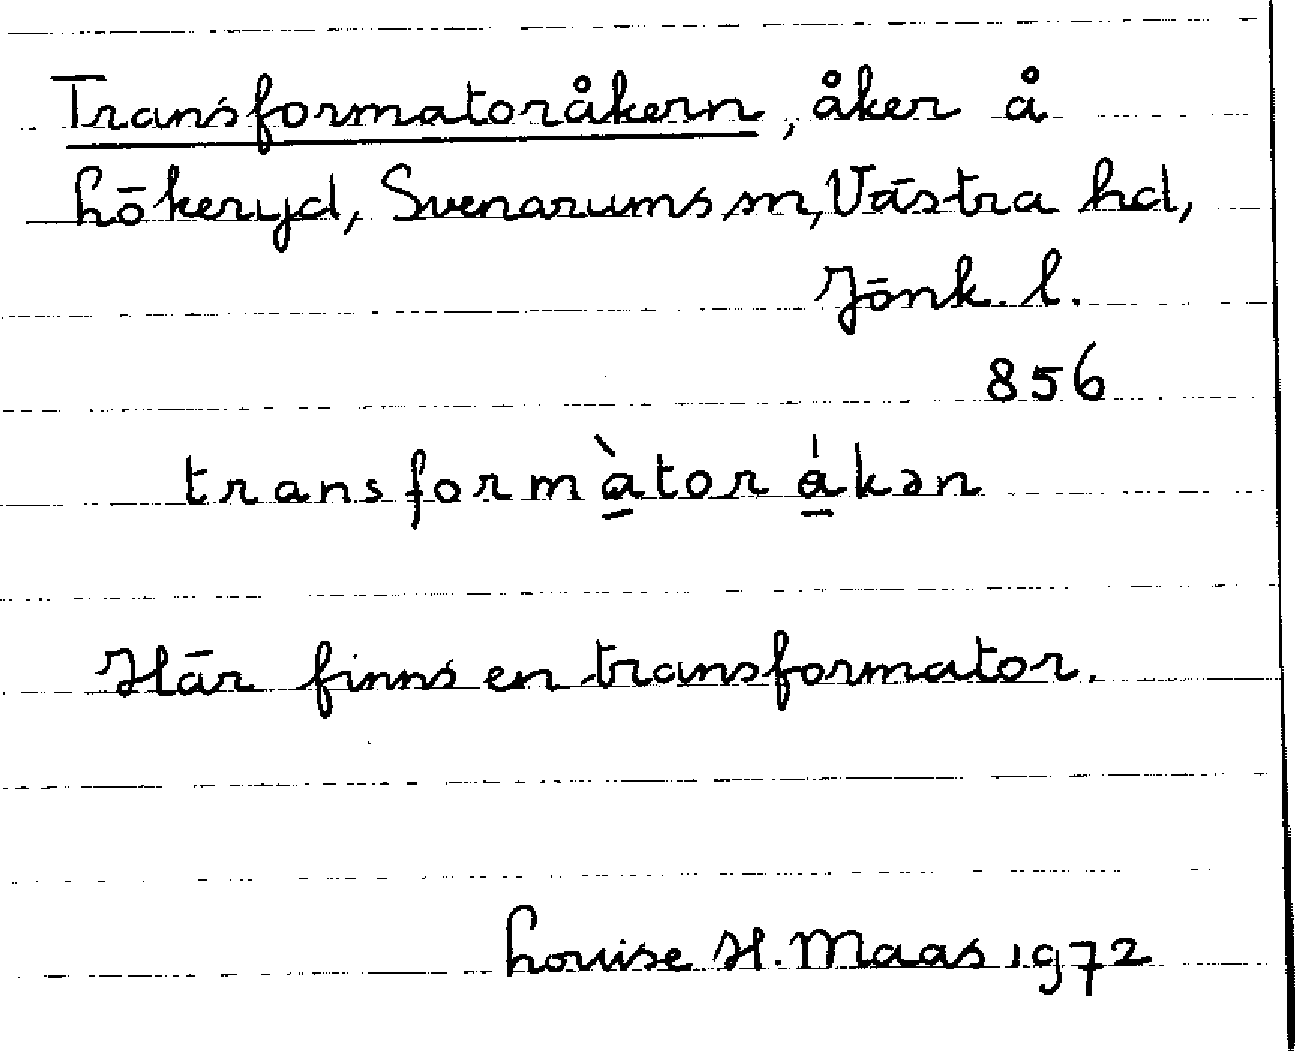 Transformatoråkern, åker å
Lökeryd, Svenarums sn, Västra hd,
Jönk. l.
856
transformà̱tor á̱kən
Här finns en transformator.
Louise H. Maas 1972